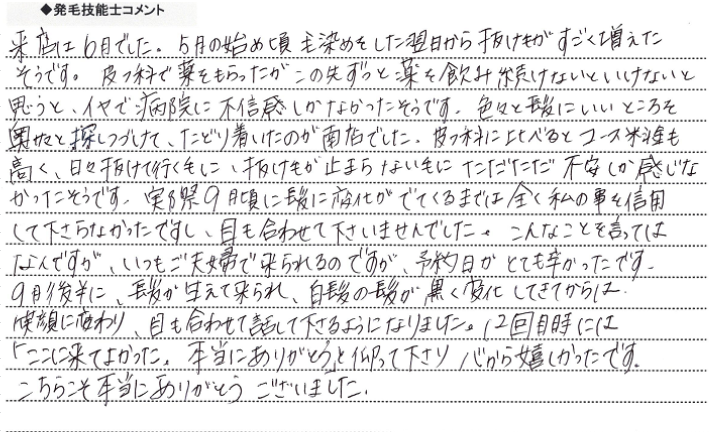 ◆発毛技能士コメント
来店は6月でした。5月の始め頃毛染めをした翌日から抜け毛がすごく増えた
そうです。皮フ科で薬をもらったがこの先ずっと薬を飲み続けないといけないと
思うと、イヤで病院に不信感しかなかったそうです。色々と髪にいいところを
奥様と探しつづけて、たどり着いたのが当店でした。皮フ科に比べるとコース料金も
高く、日々抜けて行く毛に、抜け毛が止まらない毛にただただ不安しか感じな
かったそうです。実際9月頃に髪に変化がでてくるまでは全く私の事を信用
して下さらなかったですし、目も合わせて下さいませんでした。こんなことを言っては
なんですが、いつもご夫婦で来られるのですが、予約日がとても辛かったです。
9月後半に、髪が生えて来られ、白髪の髪が黒く変化してきてからは
笑顔に変わり、目も合わせて話して下さるようになりました。12回目時には
「ここに来てよかった。本当にありがとう」と仰って下さり心から嬉しかったです。
こちらこそ本当にありがとうございました。